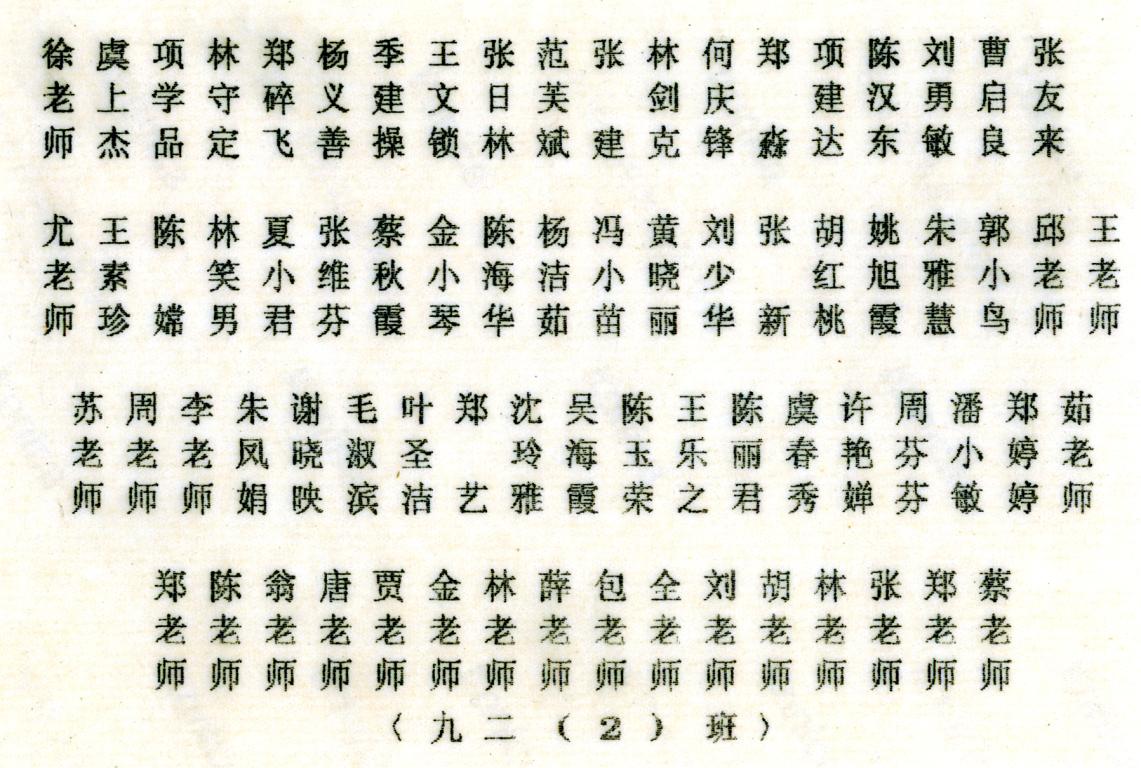 徐老师
虞上杰
项学品
林守定
郑碎飞
杨义善
季建操
王文锁
张日林
范芙斌
张建
林剑克
何庆锋
郑淼
项建达
陈汉东
刘勇敏
曹启良
张友来
尤老师
王素珍
陈嫦
林笑男
夏小君
张维芬
蔡秋霞
金小琴
陈海华
杨洁茹
冯小苗
黄晓丽
刘少华
张新
胡红桃
姚旭霞
朱雅慧
郭小鸟
邱老师
王老师
苏老师
周老师
李老师
朱凤娟
谢晓映
毛淑滨
叶圣洁
郑艺
沈玲雅
吴海霞
陈玉荣
王乐之
陈丽君
虞春秀
许艳婵
周芬芬
潘小敏
郑婷婷
茹老师
郑老师
陈老师
翁老师
唐老师
贾老师
金老师
林老师
薛老师
包老师
全老师
刘老师
胡老师
林老师
张老师
郑老师
蔡老师
〈九二(2)班〉